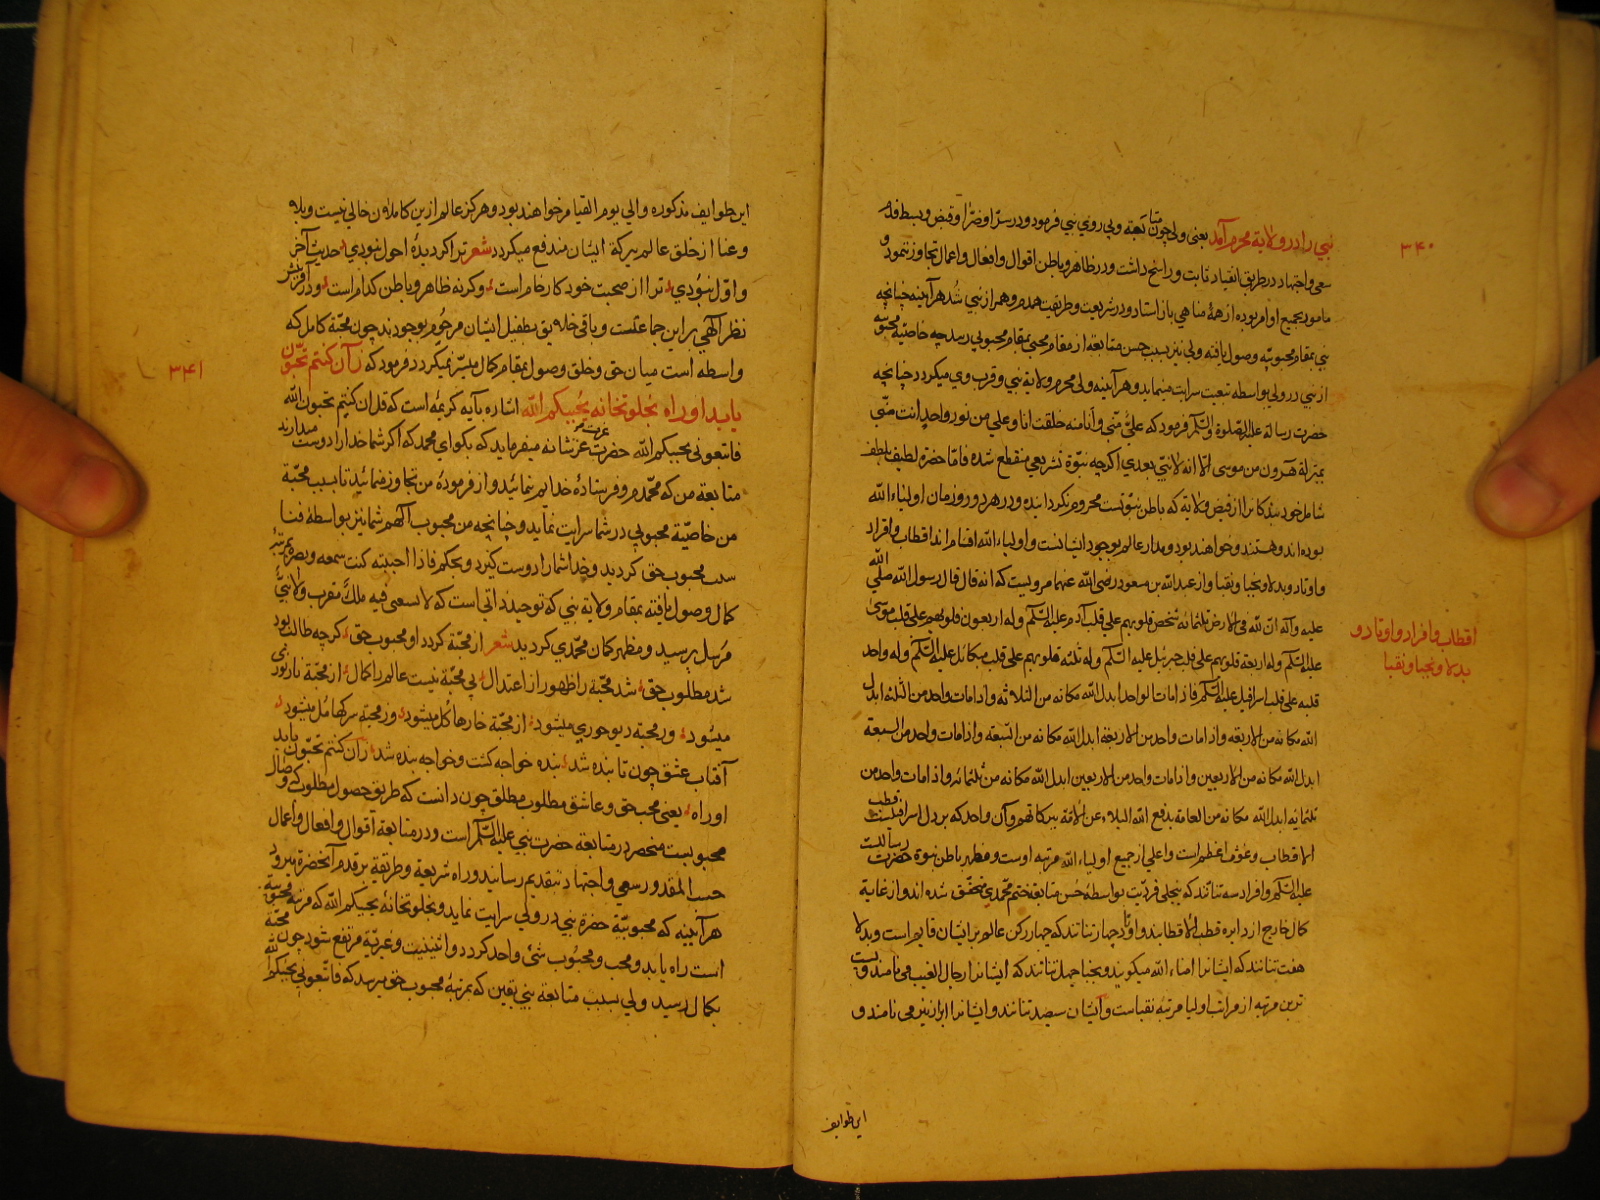 ۳۴۰
نبی را در ولایة محرم آمد یعنی ولی چون تابع نبی و پی روی نبی فرمود و در سرّا و ضرّا و قبض و بسط قدم
سعی و اجتهاد در طریق انقیاد ثابت و راسخ داشت و در ظاهر و باطن اقوال و افعال و اعمال تجاوز ننمود و
مامور بجمیع اوامر بوده از همهٔ مناهی باز استاد و در شریعت و طریقت همدم و همراز نبی شد هر آینه چنانچه
نبی بمقام محبوبیّه وصول یافته ولی نیز بسبب حسن متابعه از مقام محبی بمقام محبوبی رسد چه خاصیّه محبوبیه
از نبی در ولی بواسطه تبعیت سرایت مینماید و هر آینه ولی محرم ولایة نبی و قرب وی میکردد چنانچه
حضرت رسالة علیه الصّلوة والسّلم فرمود که علیٌّ منّی و أنا منه خلقت انا و علی من نور واحد انت منّی
بمنزلة هرون من موسی الّا انه لا نبیّ بعدی اکرچه نبوّة تشریعی منقطع شده فامّا حضرة لطیف بلطف
شامل خود بندکانرا از فیض ولایة که باطن نبوّتست محروم نکردانیده و در هر دور و زمان اولیاء الله
بوده اند و هستند و خواهند بود و مدار عالم بوجود ایشانست و اولیاء الله اقسام اند اقطاب و افراد
و اوتاد و بدلا و نجبا و نقبا و از عبدالله بن مسعود رضی الله عنهما مرویست که انه قال قال رسول الله صلی الله
علیه وآله انّ لله فی الارض ثلثمائة شخص قلوبهم علی قلب آدم علیه السّلم وله اربعون قلوبهم علی قلب موسی
علیه السّلم وله اربعة قلوبهم علی قلب جبرئیل علیه السّلم وله ثلثة قلوبهم علی قلب میکائیل علیه السّلم وله واحد
قلبه علی قلب اسرافیل علیه السّلم فاذا مات الواحد ابدل الله مکانه من الثلاثه واذا مات واحد من الثلثه ابدل
الله مکانه من الاربعه واذا مات واحد من الاربعة ابدل الله مکانه من السّبعة واذا مات واحد من السبعة
ابدل الله مکانه من الاربعین واذا مات واحد من الاربعین ابدل الله مکانه من ثلثمائه واذا مات واحد من
ثلثمائه ابدل الله مکانه من العامة یدفع الله البلاء عن الامّة ببرکاتهم و آن واحد که بر دل اسرافیلست قطب
الاقطاب و غوث اعظم است و اعلی از جمیع اولیاء الله مرتبه اوست و مظهر باطن نبوة حضرت رسالتست
علیه السّلم و افراد سه تنانند که بتجلی فردیّت بواسطهٔ حسن متابعة ختم محمّدی متحقق شده اند و از غایة
کمال خارج از دایره قطب الاقطابند و اوتاد چهار تنانند که چهار رکن عالم بر ایشان قایم است و بدلا
هفت تنانند که ایشانرا امناء الله میکویند و نجبا چهل تنانند که ایشانرا رجال الغیب می نامند و پست
ترین مرتبه از مراتب اولیا مرتبه نقباست و آیشان سیصد تنانند و ایشانرا ابرار نیز می نامند و
اقطاب و افراد و اوتاد و
بدلا و نجبا و نقبا
این طوایف
۳۴۱
این طوایف مذکوره والی یوم القیام خواهند بود و هرکز عالم ازین کاملان خالی نیست و بلا
و عنا از خلق عالم ببرکة ایشان مندفع میکردد شعر ترا کر دیدهٔ احول نبودی حدیث آخر
و اوّل نبودی ترا از صحبت خود کار خام است وکرنه ظاهر و باطن کدام است و در آفرینش
نظر آلهی بر این جماعتست و باقی خلایق بطفیل ایشان مرحوم بوجودند چون محبّة کامل که
واسطه است میان حق و خلق وصول بمقام کمال میسّر نمیکردد فرمود که ز آن کنتم تحبّون
یابد او راه بخلوتخانه یحببکم الله اشاره بآیه کریمهٔ است که قل ان کنتم تحبون الله
فاتبعونی یحببکم الله حضرت عزت عز شانه میفرماید که بکو ای محمد که اکر شما خدا را دوست میدارند
متابعة من که محمّدم و فرستادهٔ خدایم نمائید و از فرمودهٔ من تجاوز منمائید تا بسبب محبّة
من خاصیّة محبوبی در شما سرایت نماید و چنانچه من محبوب آلهم شما نیز بواسطهٔ فنا
محبوب حق کردید و خدا شما را دوست کیرد و بحکم فاذا احببته کنت سمعه و بصره بمرتبهٔ
کمال وصول یافته بمقام ولایة نبی که توحید ذاتی است که لا یسعنی فیه ملکٌ مقرب ولا نبیٌّ
مرسل رسید و مظهر کمان محمّدی کردید شعر از محبّة کردد او محبوب حق کرچه طالب بود
شد مطلوب حق شد محبّة را ظهور از اعتدال بی محبّة نیست عالم را کمال از محبّة نار نوری
میشود ور محبة دیو حوری میشود از محبّة خارها کل میشود ور محبة سرکها مل میشود
آفتاب عشق چون تابنده شد بنده خواجه کشت و خواجه بنده شد ز آن کنتم تحبّون یابد
او راه یعنی محب حق و عاشق مطلوب مطلق چون دانست که طریق حصول مطلوب و وصال
محبوبست منحصر در متابعة حضرت نبی علیه السّلم است و در متابعة اقوال و افعال و اعمال
حسب المقدور سعی و اجتهاد بتقدیم رسانید و راه شریعة و طریقة بر قدم آنحضرة پیرود
هر آیینه که محبوبیّة حضرة نبی در ولی سرایت نماید و بخلوتخانهٔ یحببکم الله که مرتبه محبوبیة
است راه یابد و محب و محبُوب شیٔ واحد کردد و اثنینیت و غیریّة مرتفع شود چون محبّة
بکمال رسید ولی بسبب متابعة نبی یقین که بمرتبهٔ محبوب حق میرسد که فاتبعونی یحببکم الله